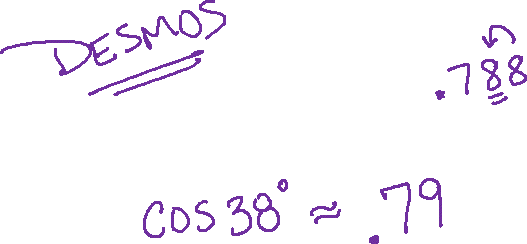 DESMOS
.788
cos 38° ≈ .79